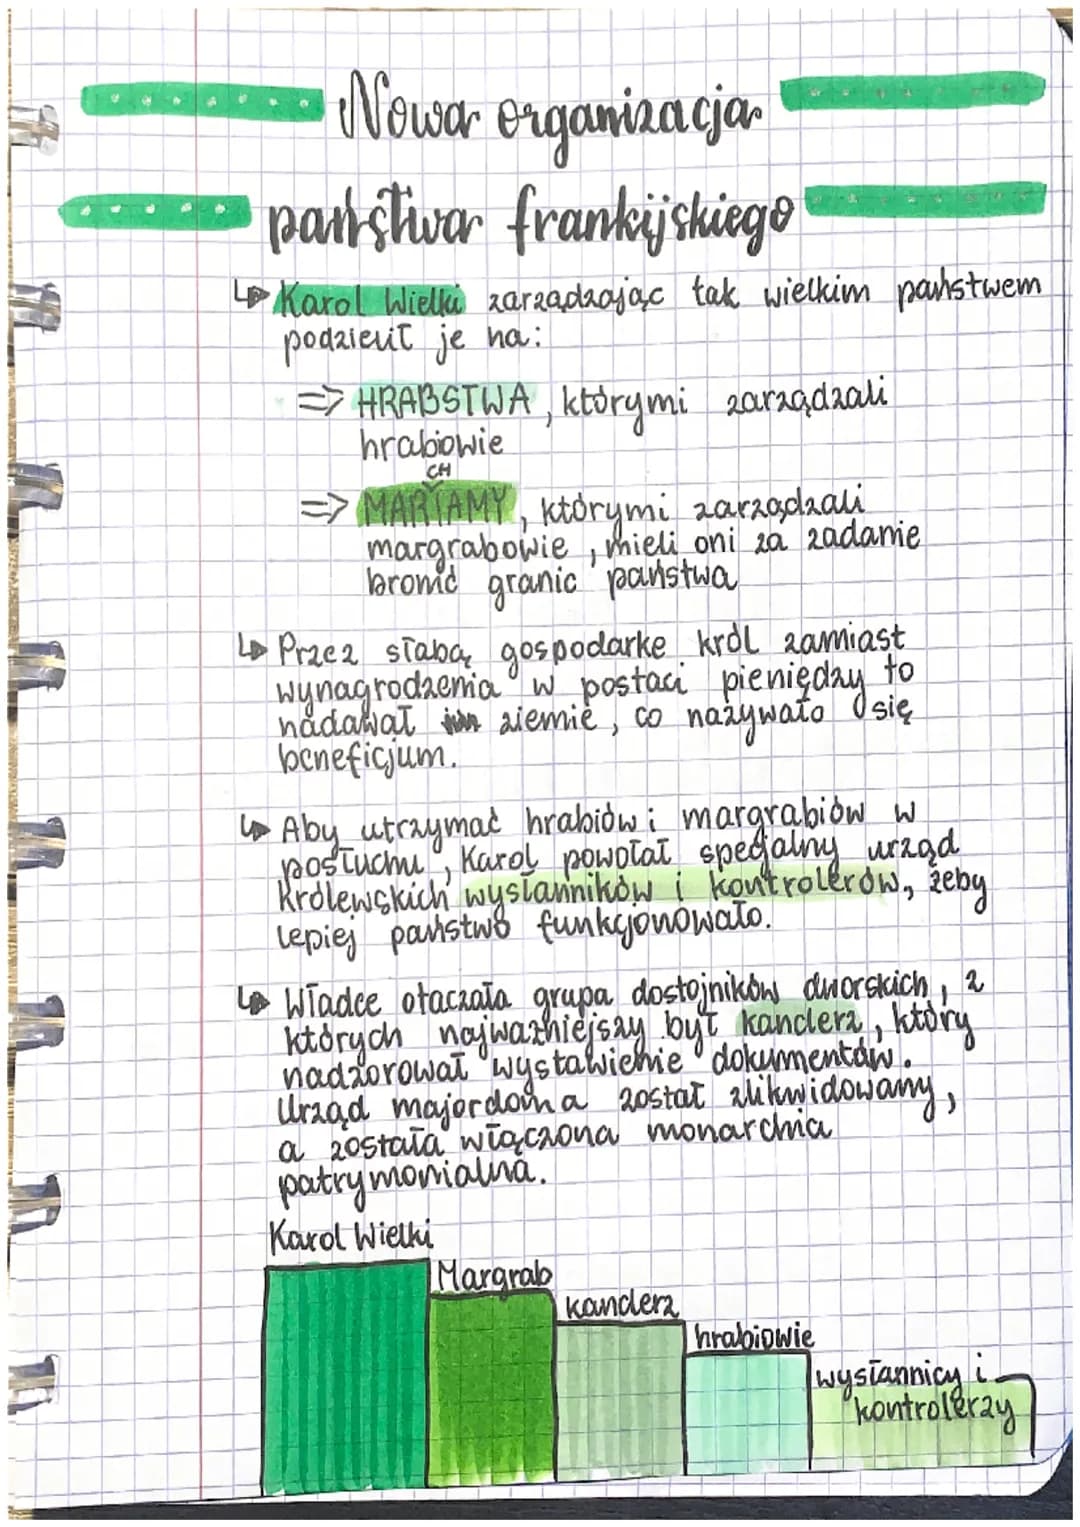 Nowa organizacja
państwa frankijskiego
Karol Wielki zarządzając tak wielkim państwem
podzielił je na:
=> HRABSTWA, którymi zarządzali
hrabiowie
CH
=> MARIAMY, którymi zarządzali
margrabowie, mieli oni za zadanie
bronić granic państwa
Przez słabą gospodarke król zamiast
wynagrodzenia w postaci pieniędzy to
nadawał ziemie, co nazywało się
beneficjum.
Aby utrzymać hrabiów i margrabiów w
posłuchu, Karol powołał specjalny urząd
królewskich wysłanników i kontrolerów, żeby
lepiej państwo funkcjonowało.
Władce otaczała grupa dostojników dworskich, z
których najważniejszy był kanclerz, który
nadzorował wystawienie dokumentów.
Urząd majordoma został zlikwidowany,
a została włączona monarchia
patrymonialna.
Karol Wielki
Margrab
kanclerz
hrabiowie
wysłannicy i
kontrolerzy